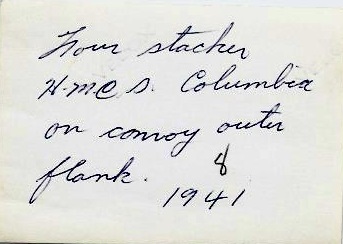 Four stacker
H.M.C.S. Columbia
on convoy outer
flank.
8
1941